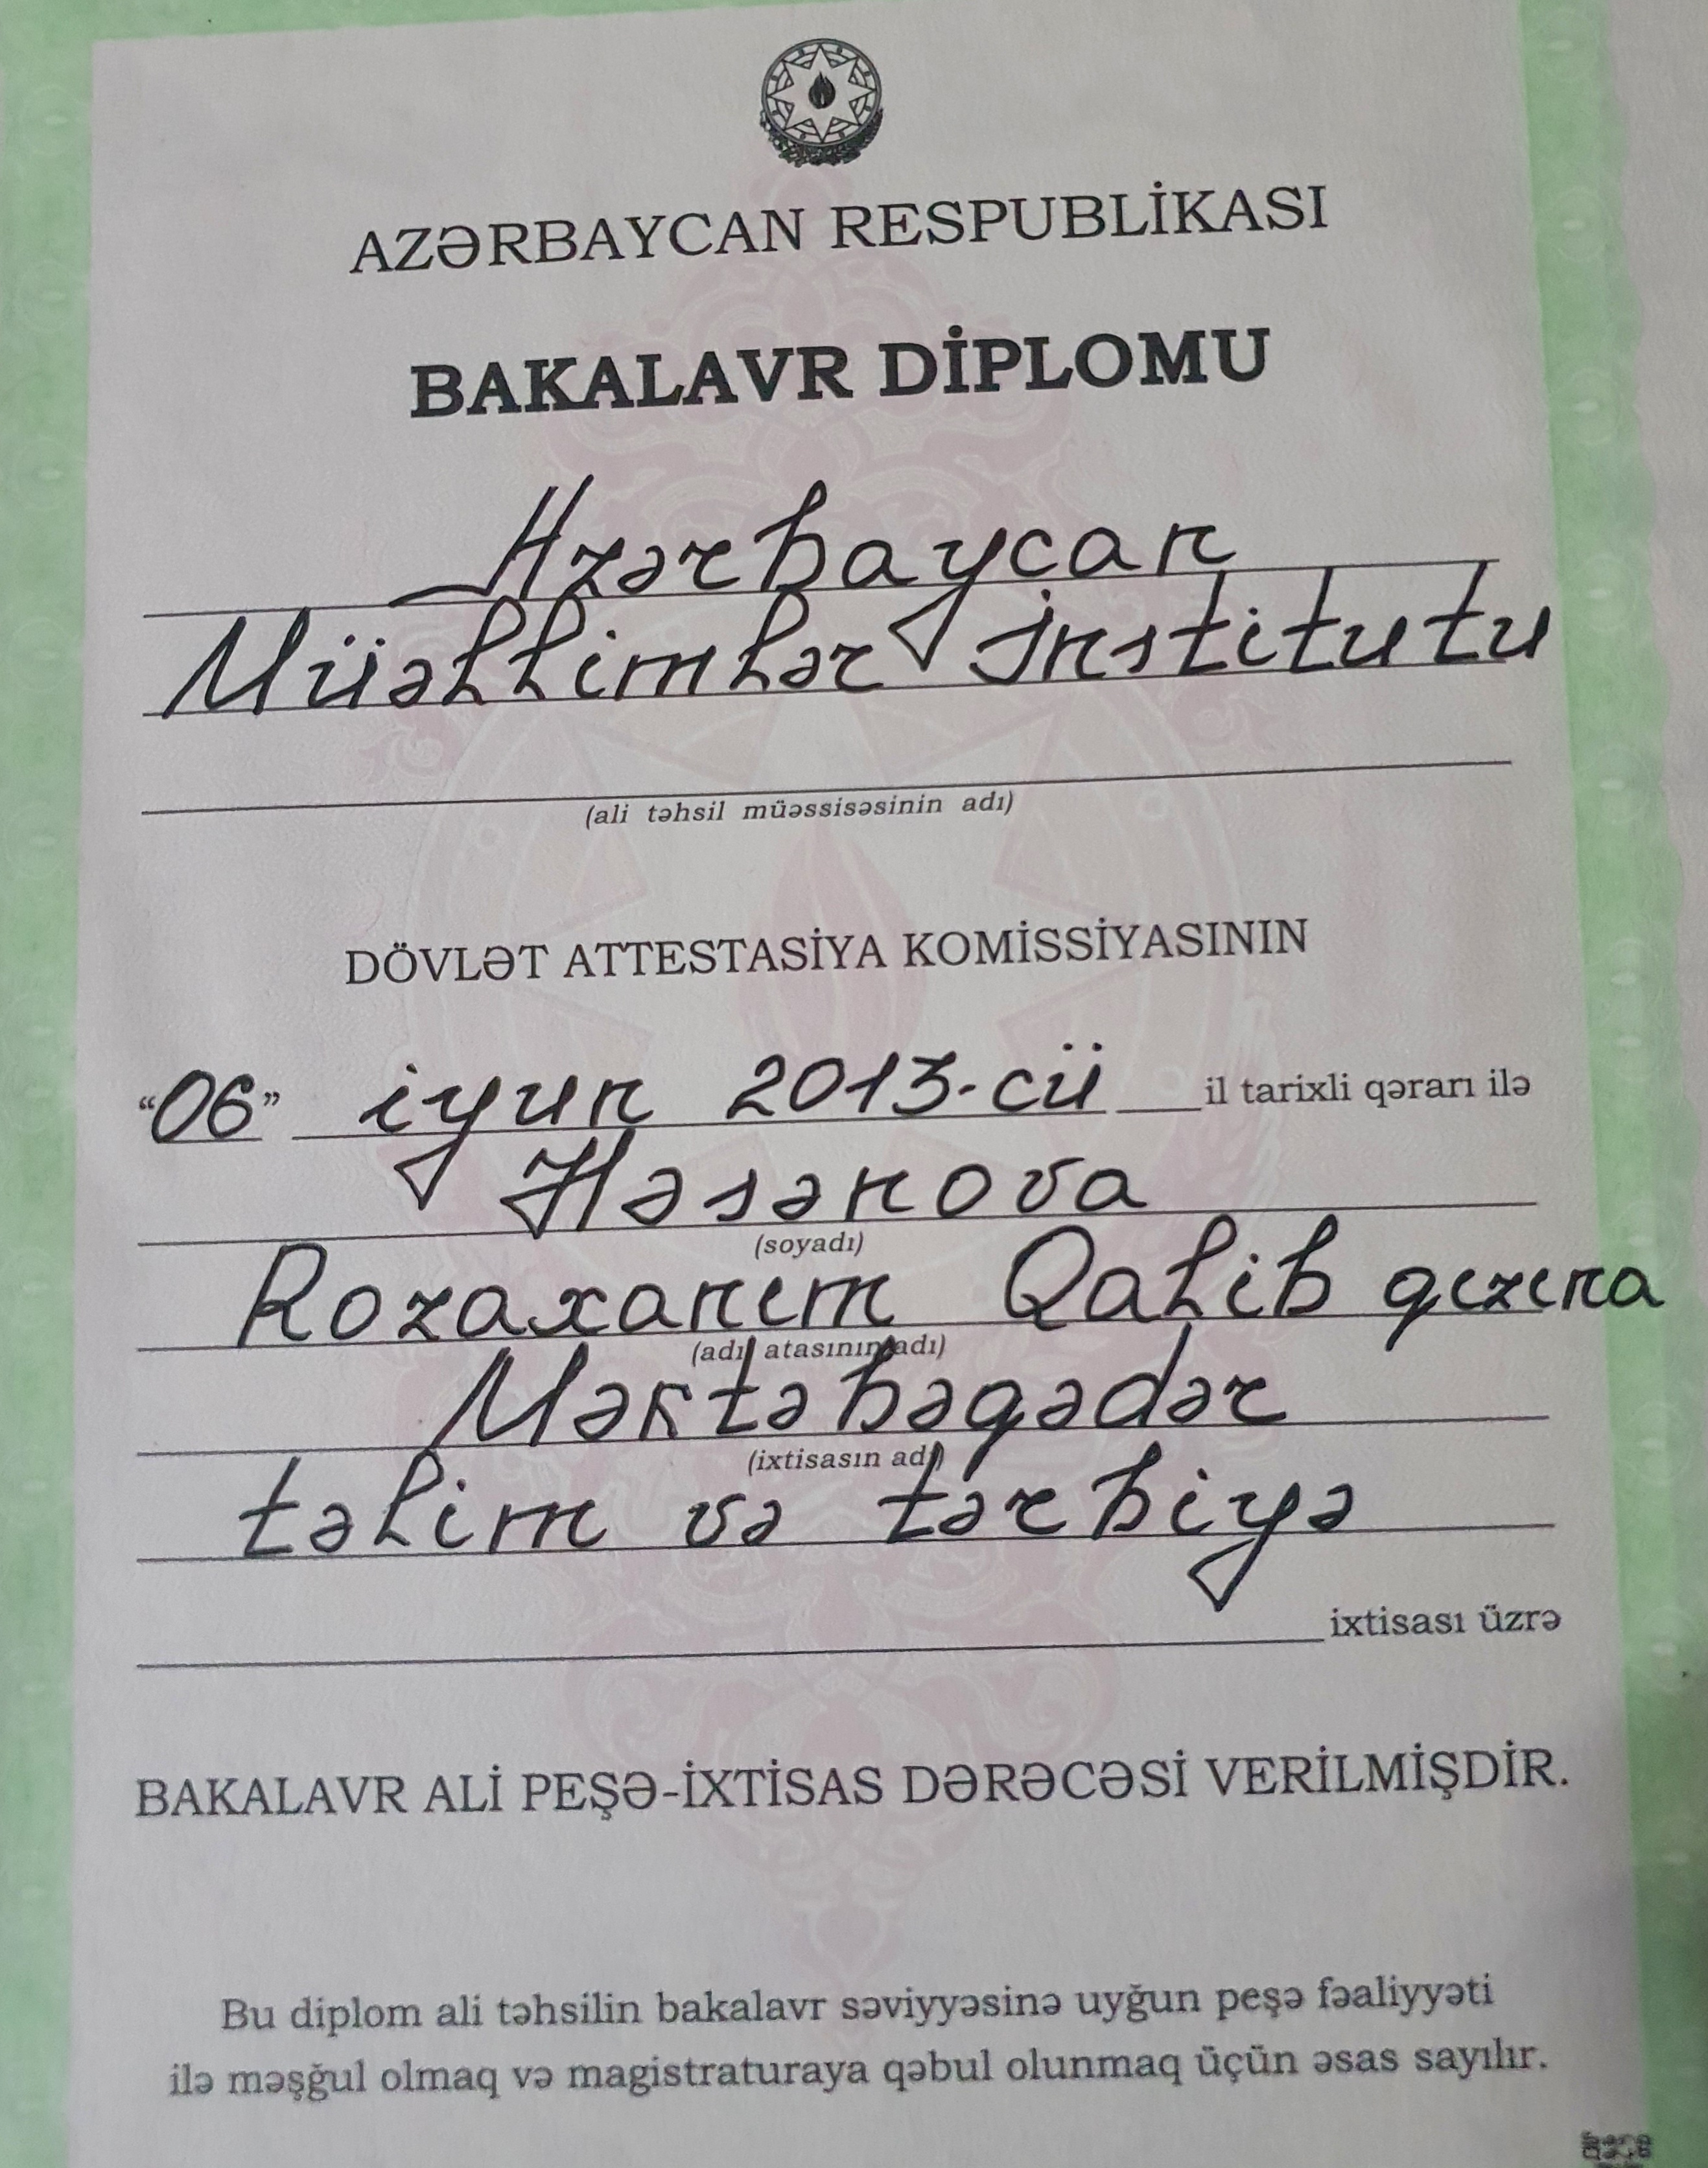 AZƏRBAYCAN RESPUBLİKASI
BAKALAVR DİPLOMU
Azərbaycan
Müəllimlər İnstitutu
(ali təhsil müəssisəsinin adı)
DÖVLƏT ATTESTASİYA KOMİSSİYASININ
"06" iyun 2013-cü il tarixli qərarı ilə
Həsənova
(soyadı)
Rozaxanım Qalib qızına
(adı, atasının adı)
Məktəbəqədər
(ixtisasın adı)
təlim və tərbiyə
ixtisası üzrə
BAKALAVR ALİ PEŞƏ-İXTİSAS DƏRƏCƏSİ VERİLMİŞDİR.
Bu diplom ali təhsilin bakalavr səviyyəsinə uyğun peşə fəaliyyəti
ilə məşğul olmaq və magistraturaya qəbul olunmaq üçün əsas sayılır.